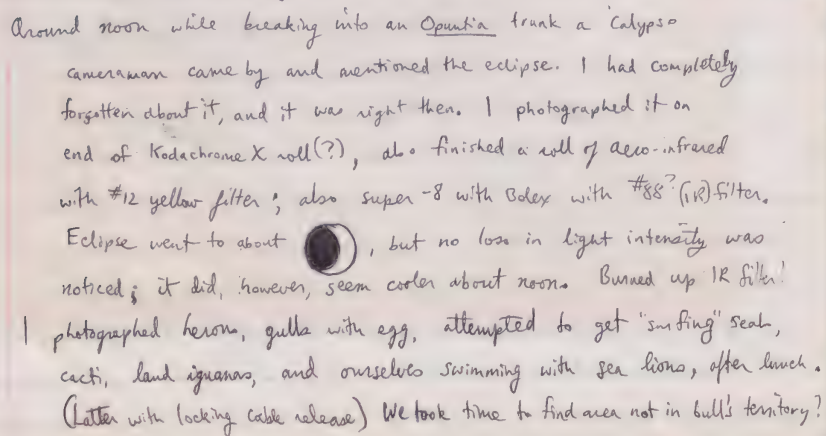 Around noon while breaking into an Opuntia trunk a Calypso
cameraman came by and mentioned the eclipse. I had completely
forgotten about it, and it was right then. I photographed it on
end of Kodachrome X roll(?), also finished a roll of aero-infrared
with #12 yellow filter; also super-8 with Bolex with #88? (IR) filter.
Eclipse went to about , but no loss in light intensity was
noticed; it did, however, seem cooler about noon. Burned up IR filter!
I photographed herons, gulls with egg, attempted to get "surfing" seals,
cacti, land iguanas, and ourselves swimming with sea lions, after lunch.
(Latter with locking cable release) We took time to find area not in bull's territory?